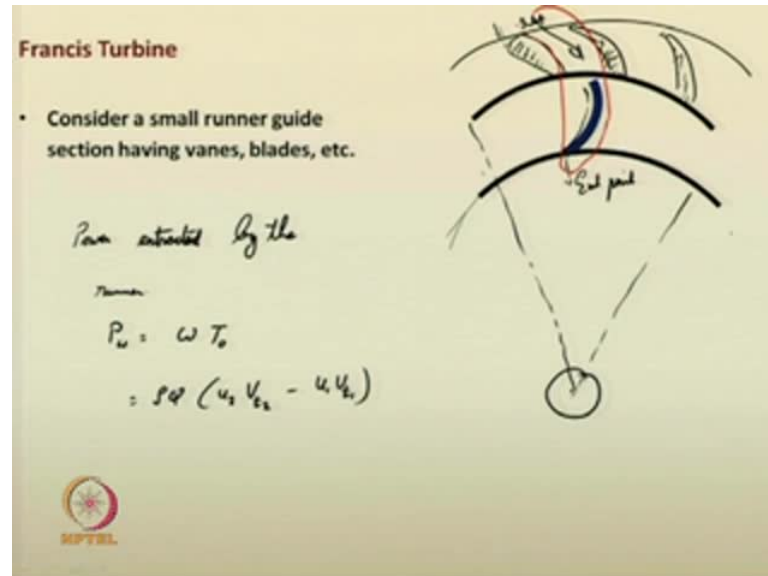 Francis Turbine
• Consider a small runner guide
section having vanes, blades, etc.
Power extracted by the
runner
P_w = ω T_o
= ρQ (u_2 V_t2 - u_1 V_t1)
NPTEL